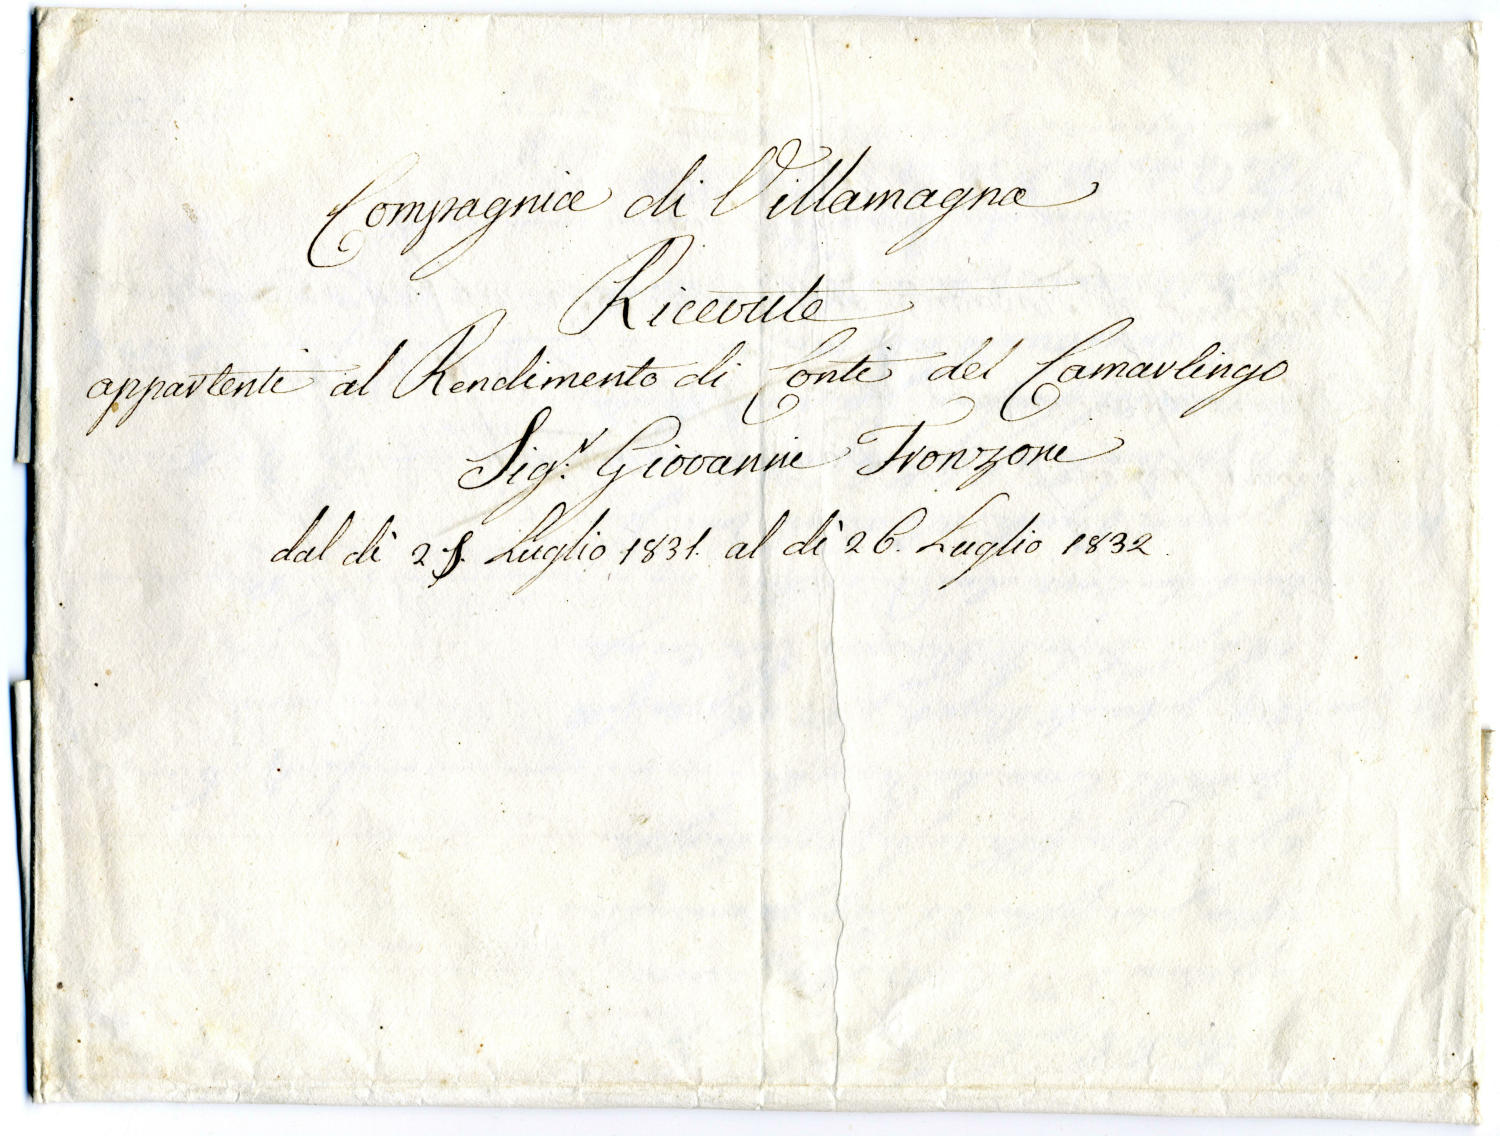 Compagnia di Villamagna
Ricevute
appartenti al Rendimento di Conti del Camarlingo
Sig.r Giovanni Fronzoni
dal dì Luglio 1831. al dì 26. Luglio 1832.